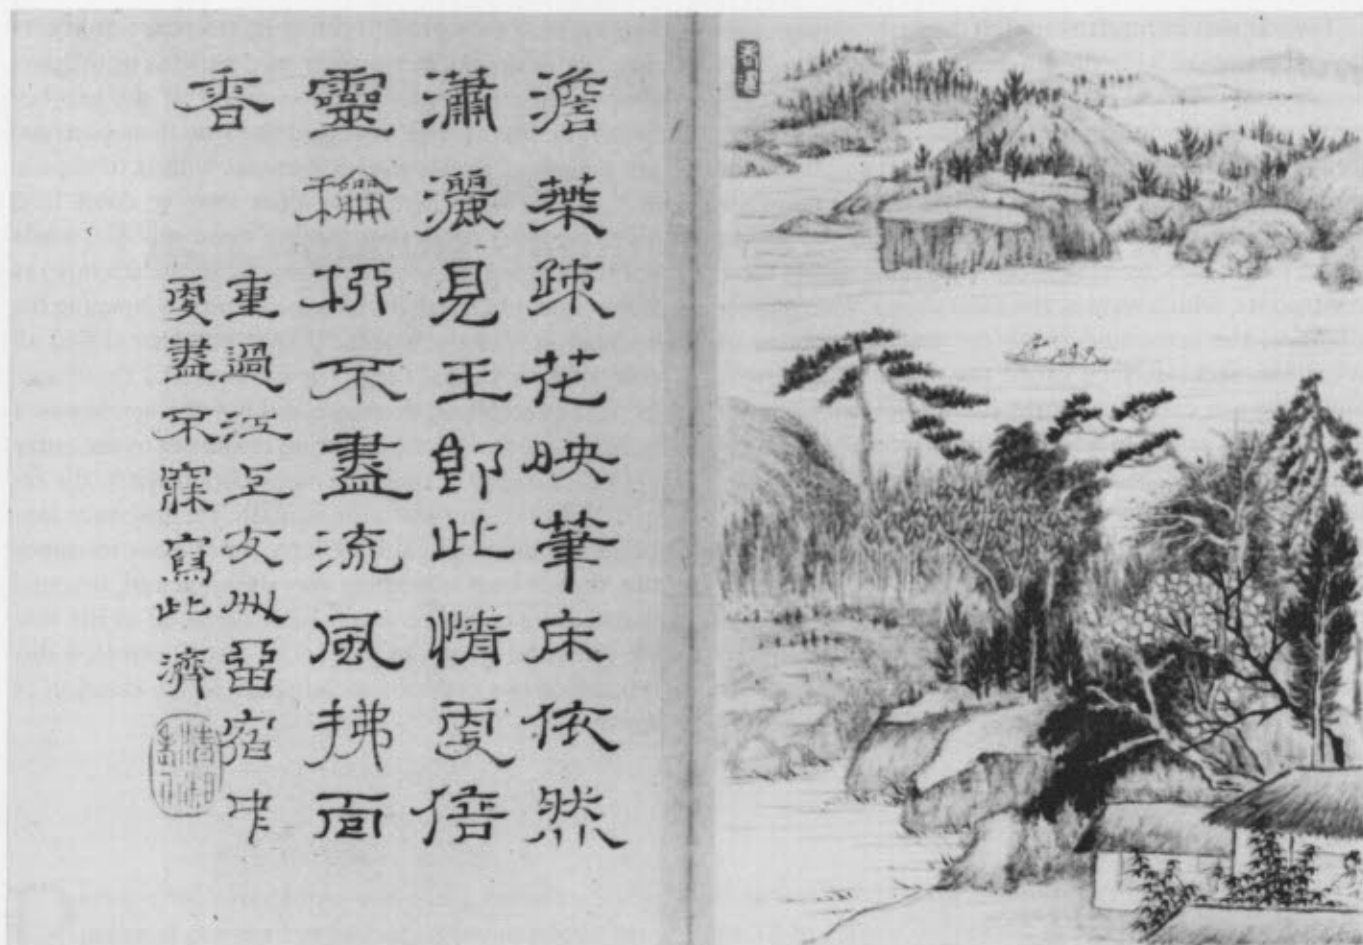 澹葉疎花映筆床依然
瀟灑見王郎此情更倍
靈龢柳不盡流風拂面
香
重過江上友以留宿中
更盡不寐寫此濟